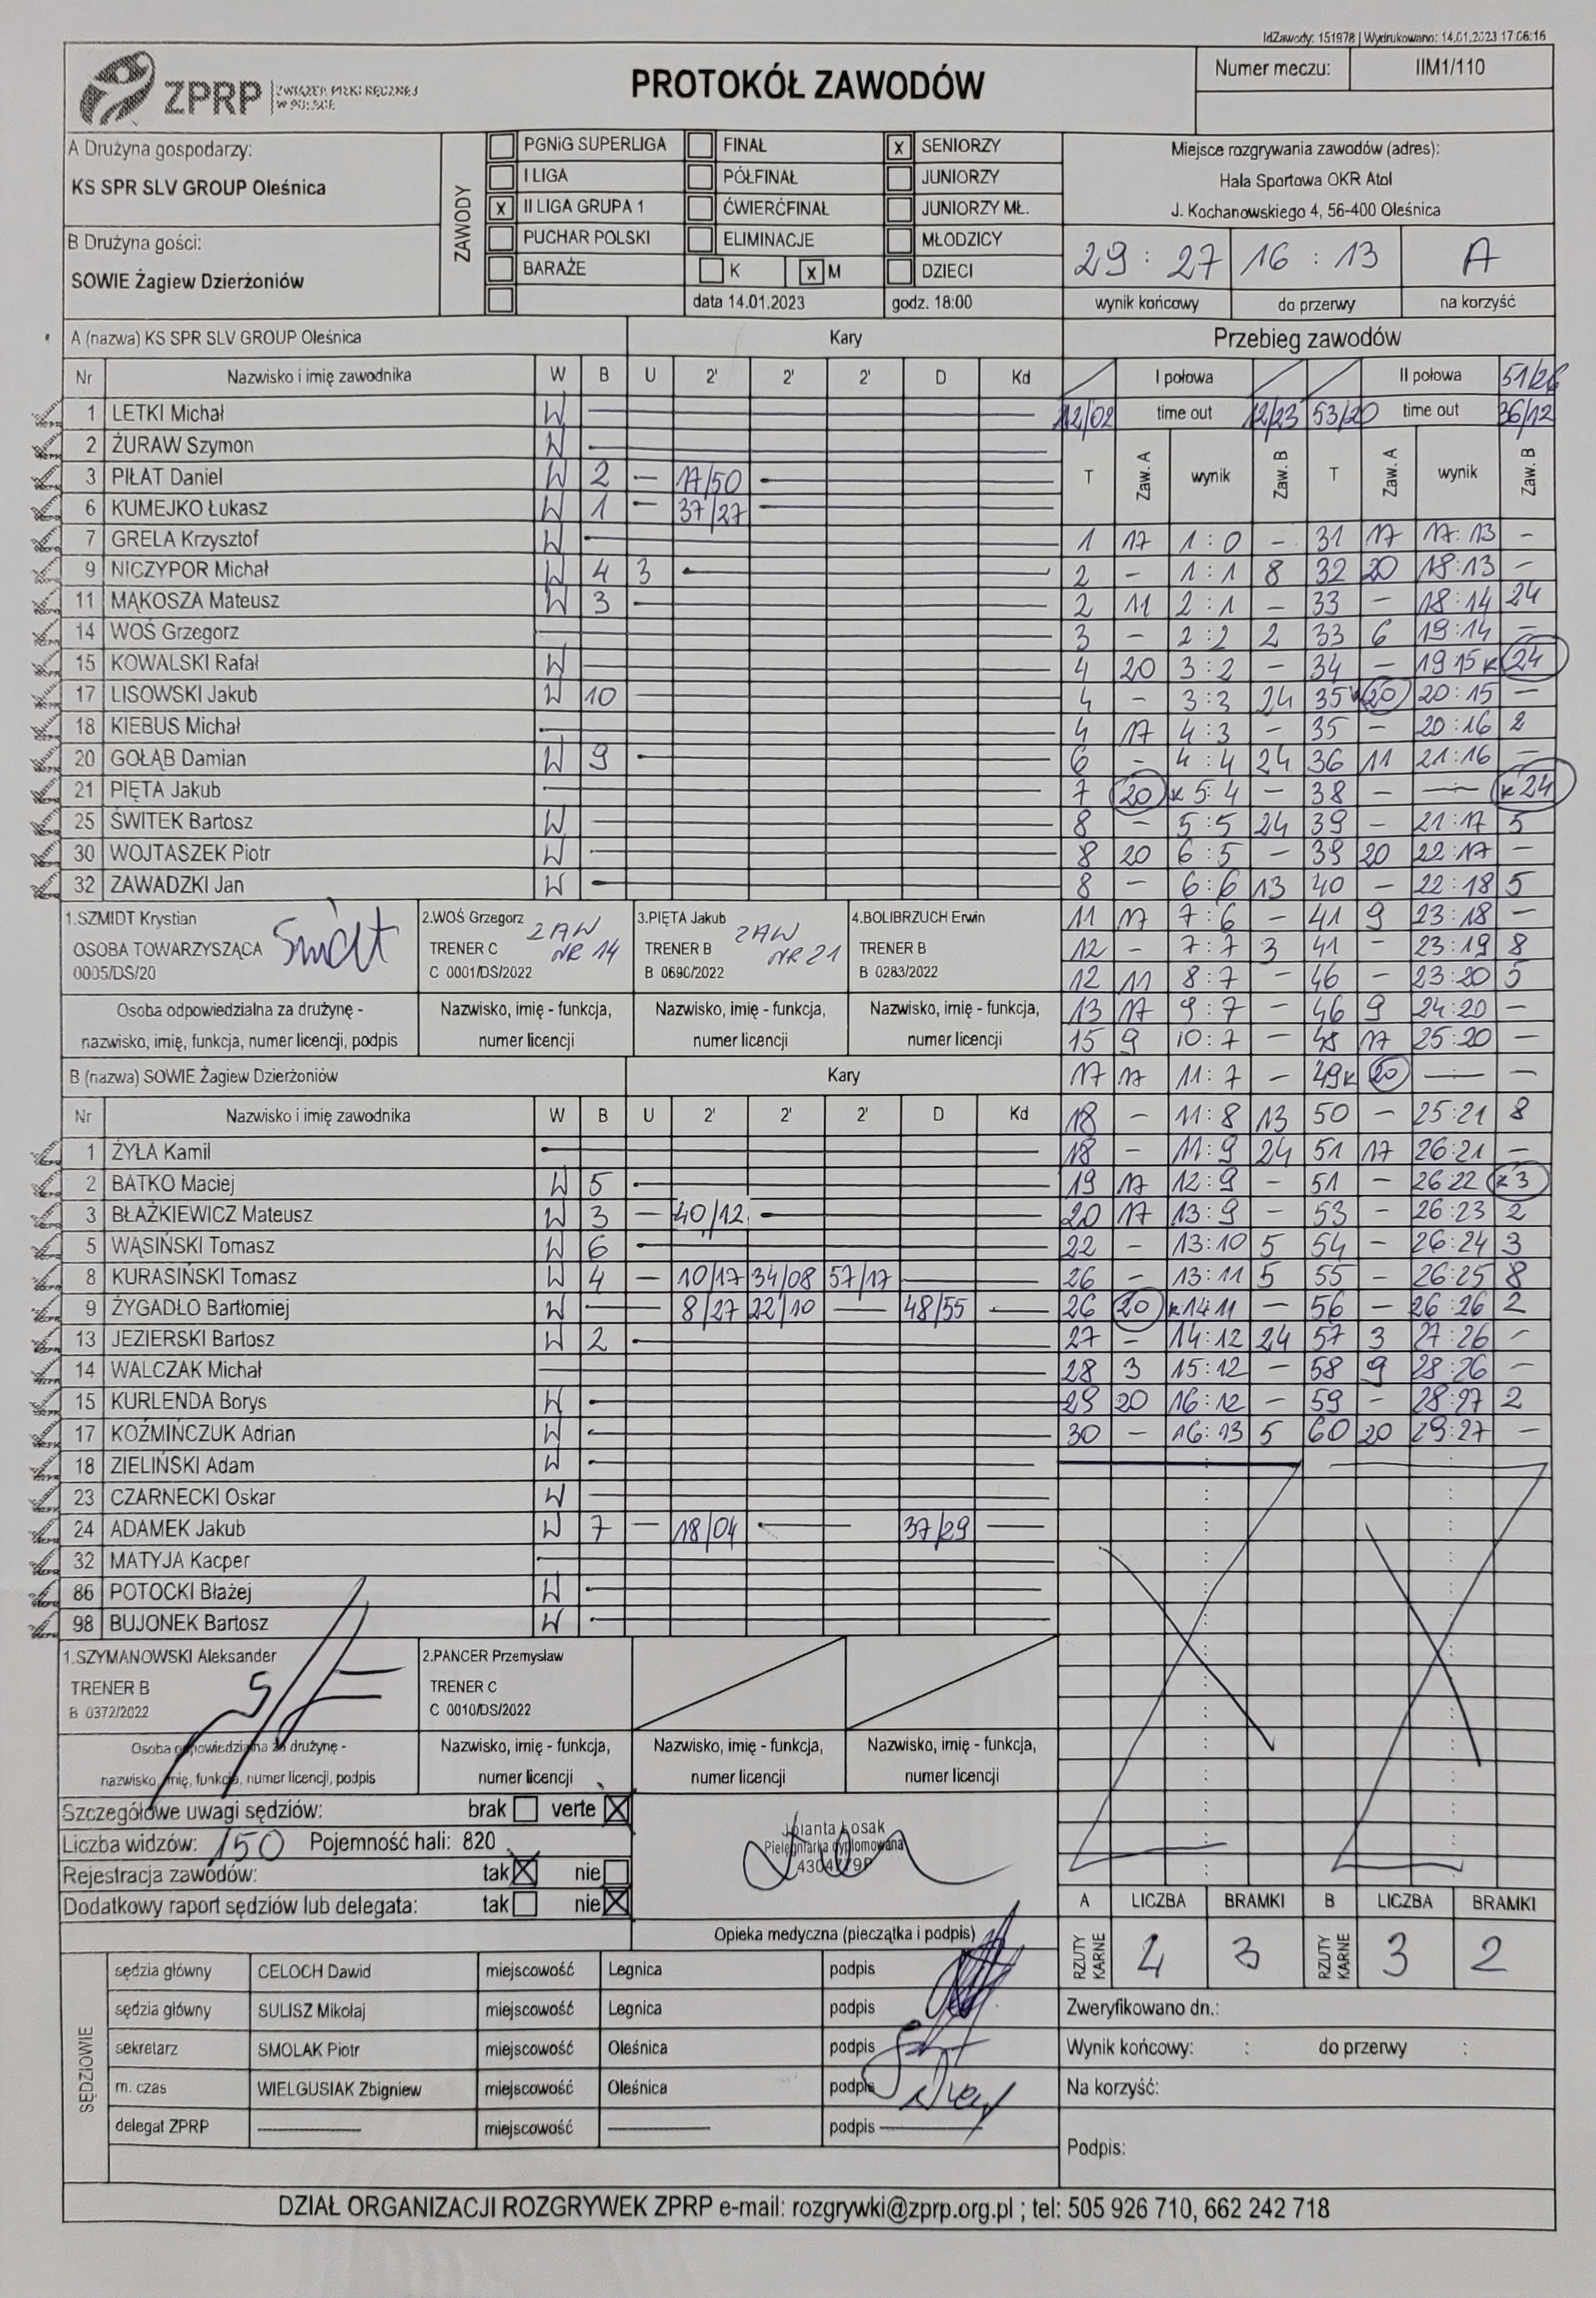 IdZawody: 151978 | Wydrukowano: 14.01.2023 17:06:16
ZPRP ZWIĄZEK PIŁKI RĘCZNEJ W POLSCE
PROTOKÓŁ ZAWODÓW
Numer meczu: IIM1/110
A Drużyna gospodarzy:
KS SPR SLV GROUP Oleśnica
B Drużyna gości:
SOWIE Żagiew Dzierżoniów
ZAWODY
PGNiG SUPERLIGA FINAŁ x SENIORZY
I LIGA PÓŁFINAŁ JUNIORZY
x II LIGA GRUPA 1 ĆWIERĆFINAŁ JUNIORZY MŁ.
PUCHAR POLSKI ELIMINACJE MŁODZICY
BARAŻE K x M DZIECI
data 14.01.2023 godz. 18:00
Miejsce rozgrywania zawodów (adres):
Hala Sportowa OKR Atol
J. Kochanowskiego 4, 56-400 Oleśnica
29 : 27 16 : 13 A
wynik końcowy do przerwy na korzyść
A (nazwa) KS SPR SLV GROUP Oleśnica Kary
Nr Nazwisko i imię zawodnika W B U 2' 2' 2' D Kd
1 LETKI Michał W
2 ŻURAW Szymon W
3 PIŁAT Daniel W 2 — 17/50
6 KUMEJKO Łukasz W 1 — 37/27
7 GRELA Krzysztof W
9 NICZYPOR Michał W 4 3
11 MĄKOSZA Mateusz W 3
14 WOŚ Grzegorz
15 KOWALSKI Rafał W
17 LISOWSKI Jakub W 10
18 KIEBUS Michał
20 GOŁĄB Damian W 9
21 PIĘTA Jakub
25 ŚWITEK Bartosz W
30 WOJTASZEK Piotr W
32 ZAWADZKI Jan W
1.SZMIDT Krystian
OSOBA TOWARZYSZĄCA
0005/DS/20
2.WOŚ Grzegorz ZAW NR 14
TRENER C
C 0001/DS/2022
3.PIĘTA Jakub ZAW NR 21
TRENER B
B 0690/2022
4.BOLIBRZUCH Erwin
TRENER B
B 0283/2022
Osoba odpowiedzialna za drużynę -
nazwisko, imię, funkcja, numer licencji, podpis
Nazwisko, imię - funkcja,
numer licencji
Nazwisko, imię - funkcja,
numer licencji
Nazwisko, imię - funkcja,
numer licencji
B (nazwa) SOWIE Żagiew Dzierżoniów Kary
Nr Nazwisko i imię zawodnika W B U 2' 2' 2' D Kd
1 ŻYŁA Kamil
2 BATKO Maciej W 5
3 BŁAŻKIEWICZ Mateusz W 3 — 40/12
5 WĄSIŃSKI Tomasz W 6
8 KURASIŃSKI Tomasz W 4 — 10/17 34/08 57/17
9 ŻYGADŁO Bartłomiej W — 8/27 22/10 — 48/55
13 JEZIERSKI Bartosz W 2
14 WALCZAK Michał
15 KURLENDA Borys W
17 KOŹMIŃCZUK Adrian W
18 ZIELIŃSKI Adam W
23 CZARNECKI Oskar W
24 ADAMEK Jakub W 7 — 18/04 — 37/29 —
32 MATYJA Kacper
86 POTOCKI Błażej W
98 BUJONEK Bartosz W
1.SZYMANOWSKI Aleksander
TRENER B
B 0372/2022
2.PANCER Przemysław
TRENER C
C 0010/DS/2022
Osoba odpowiedzialna za drużynę -
nazwisko, imię, funkcja, numer licencji, podpis
Nazwisko, imię - funkcja,
numer licencji
Nazwisko, imię - funkcja,
numer licencji
Nazwisko, imię - funkcja,
numer licencji
Przebieg zawodów
I połowa II połowa
12/02 time out 12/23 53/20 time out 36/12
T Zaw. A wynik Zaw. B T Zaw. A wynik Zaw. B
1 17 1:0 — 31 17 17:13 —
2 — 1:1 8 32 20 18:13 —
2 11 2:1 — 33 — 18:14 24
3 — 2:2 2 33 6 19:14 —
4 20 3:2 — 34 — 19 15 K 24
4 — 3:3 24 35 K 20 20:15 —
4 17 4:3 — 35 — 20:16 2
6 — 4:4 24 36 11 21:16 —
7 20 K 5:4 — 38 — — K 24
8 — 5:5 24 39 — 21:17 5
8 20 6:5 — 39 20 22:17 —
8 — 6:6 13 40 — 22:18 5
11 17 7:6 — 41 9 23:18 —
12 — 7:7 3 41 — 23:19 8
12 11 8:7 — 46 — 23:20 5
13 17 9:7 — 46 9 24:20 —
15 9 10:7 — 48 17 25:20 —
17 17 11:7 — 49 K 20 — —
18 — 11:8 13 50 — 25:21 8
18 — 11:9 24 51 17 26:21 —
19 17 12:9 — 51 — 26 22 K 3
20 17 13:9 — 53 — 26:23 2
22 — 13:10 5 54 — 26:24 3
26 — 13:11 5 55 — 26:25 8
26 20 K 14 11 — 56 — 26:26 2
27 — 14:12 24 57 3 27:26 —
28 3 15:12 — 58 9 28:26 —
29 20 16:12 — 59 — 28:27 2
30 — 16:13 5 60 20 29:27 —
Szczegółowe uwagi sędziów: brak verte X
Liczba widzów: 150 Pojemność hali: 820
Rejestracja zawodów: tak X nie
Dodatkowy raport sędziów lub delegata: tak nie X
Jolanta Łosak
Pielęgniarka dyplomowana
Opieka medyczna (pieczątka i podpis)
A LICZBA BRAMKI B LICZBA BRAMKI
RZUTY KARNE 4 3 RZUTY KARNE 3 2
SĘDZIOWIE
sędzia główny CELOCH Dawid miejscowość Legnica podpis
sędzia główny SULISZ Mikołaj miejscowość Legnica podpis
sekretarz SMOLAK Piotr miejscowość Oleśnica podpis
m. czas WIELGUSIAK Zbigniew miejscowość Oleśnica podpis
delegat ZPRP miejscowość podpis
Zweryfikowano dn.:
Wynik końcowy: : do przerwy :
Na korzyść:
Podpis:
DZIAŁ ORGANIZACJI ROZGRYWEK ZPRP e-mail: rozgrywki@zprp.org.pl ; tel: 505 926 710, 662 242 718